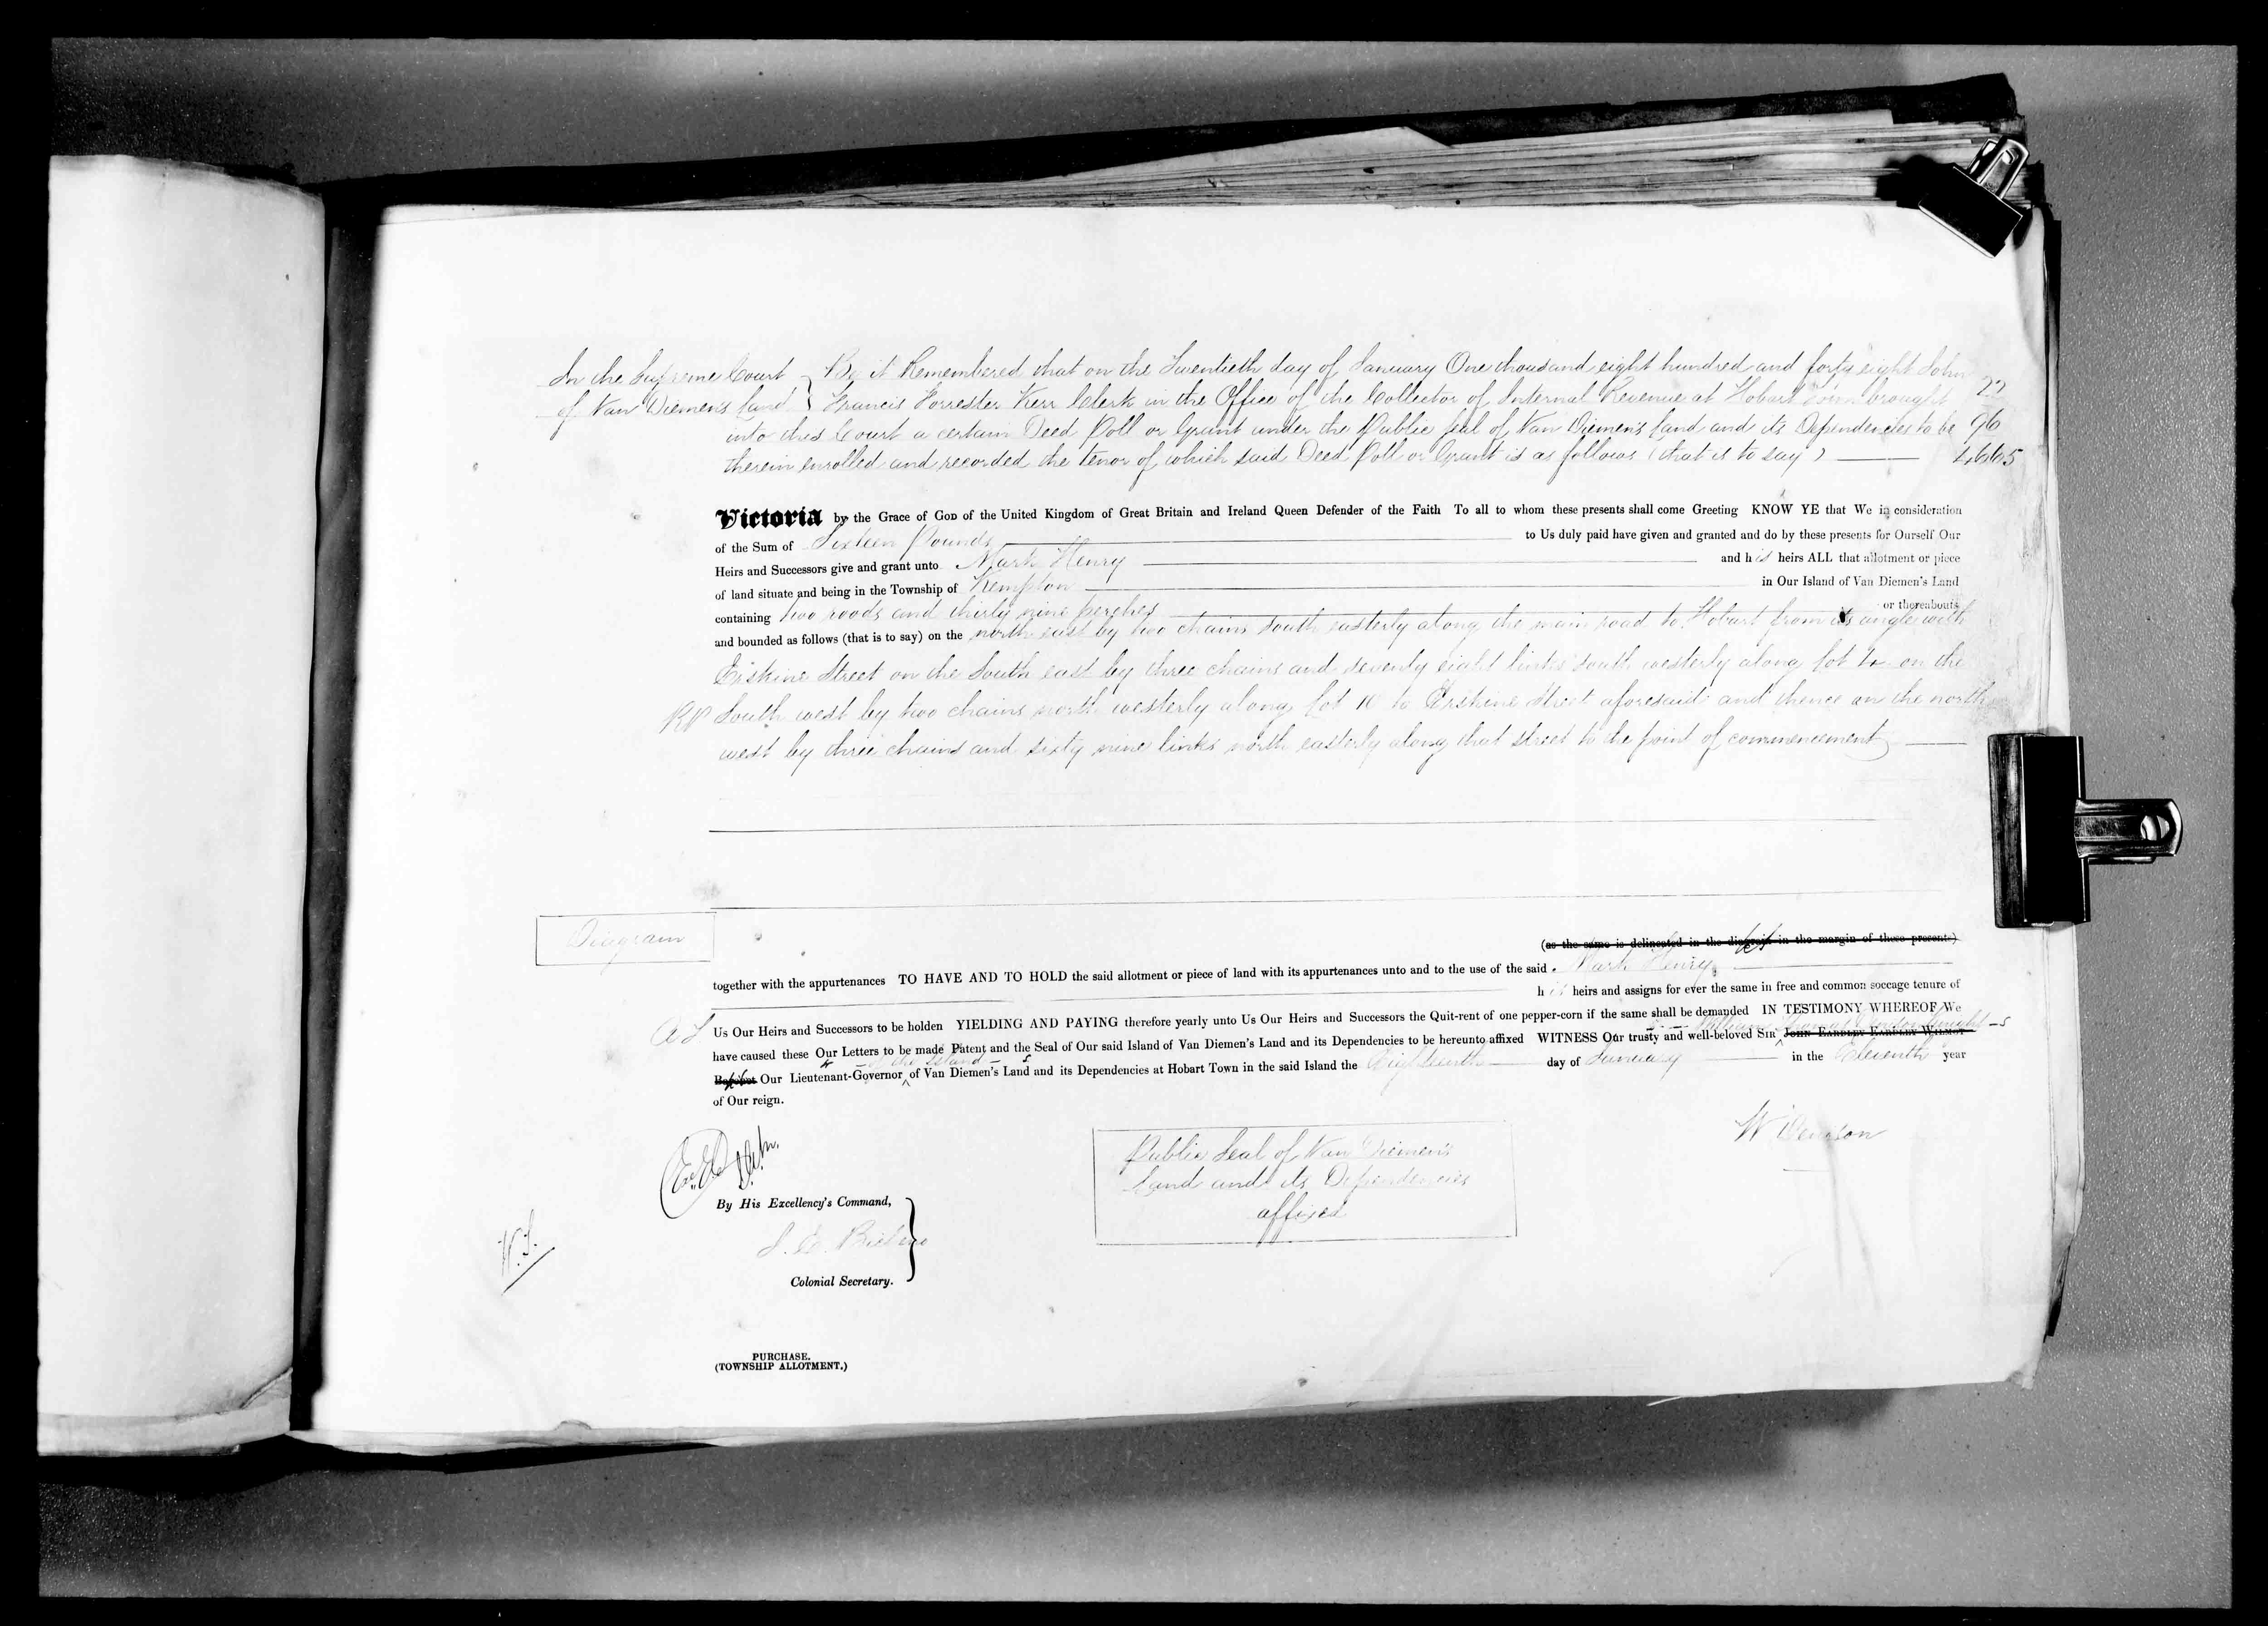 In the Supreme Court } Be it Remembered that on the Twentieth day of January One thousand eight hundred and forty eight John
of Van Diemen's Land } Francis Forrester Kerr Clerk in the Office of the Collector of Internal Revenue at Hobart Town brought 22
into this Court a certain Deed Poll or Grant under the Public Seal of Van Diemen's Land and its Dependencies to be 96
therein enrolled and recorded the tenor of which said Deed Poll or Grant is as follows (that is to say) 4665
Victoria by the Grace of God of the United Kingdom of Great Britain and Ireland Queen Defender of the Faith To all to whom these presents shall come Greeting KNOW YE that We in consideration
of the Sum of Sixteen Pounds to Us duly paid have given and granted and do by these presents for Ourself Our
Heirs and Successors give and grant unto Mark Henry and his heirs ALL that allotment or piece
of land situate and being in the Township of Kempton in Our Island of Van Diemen's Land
containing two roods and thirty nine perches or thereabouts
and bounded as follows (that is to say) on the north east by two chains south easterly along the main road to Hobart from its angle with
Erskine Street on the South east by three chains and seventy eight links south westerly along Lot 4 on the
RP South west by two chains north westerly along Lot 10 to Erskine Street aforesaid and thence on the north
west by three chains and sixty nine links north easterly along that street to the point of commencement
Diagram
(as the same is delineated in the diagram in the margin of these presents)
together with the appurtenances TO HAVE AND TO HOLD the said allotment or piece of land with its appurtenances unto and to the use of the said Mark Henry
his heirs and assigns for ever the same in free and common soccage tenure of
Us Our Heirs and Successors to be holden YIELDING AND PAYING therefore yearly unto Us Our Heirs and Successors the Quit-rent of one pepper-corn if the same shall be demanded IN TESTIMONY WHEREOF We
William Thomas Denison Knight
have caused these Our Letters to be made Patent and the Seal of Our said Island of Van Diemen's Land and its Dependencies to be hereunto affixed WITNESS Our trusty and well-beloved Sir John Eardley Eardley Wilmot
of the Island
Baronet Our Lieutenant-Governor of Van Diemen's Land and its Dependencies at Hobart Town in the said Island the Eighteenth day of January in the Eleventh year
of Our reign.
W Denison
Public Seal of Van Diemen's
Land and its Dependencies
affixed
By His Excellency's Command,
J. E. Bicheno
Colonial Secretary.
PURCHASE.
(TOWNSHIP ALLOTMENT.)